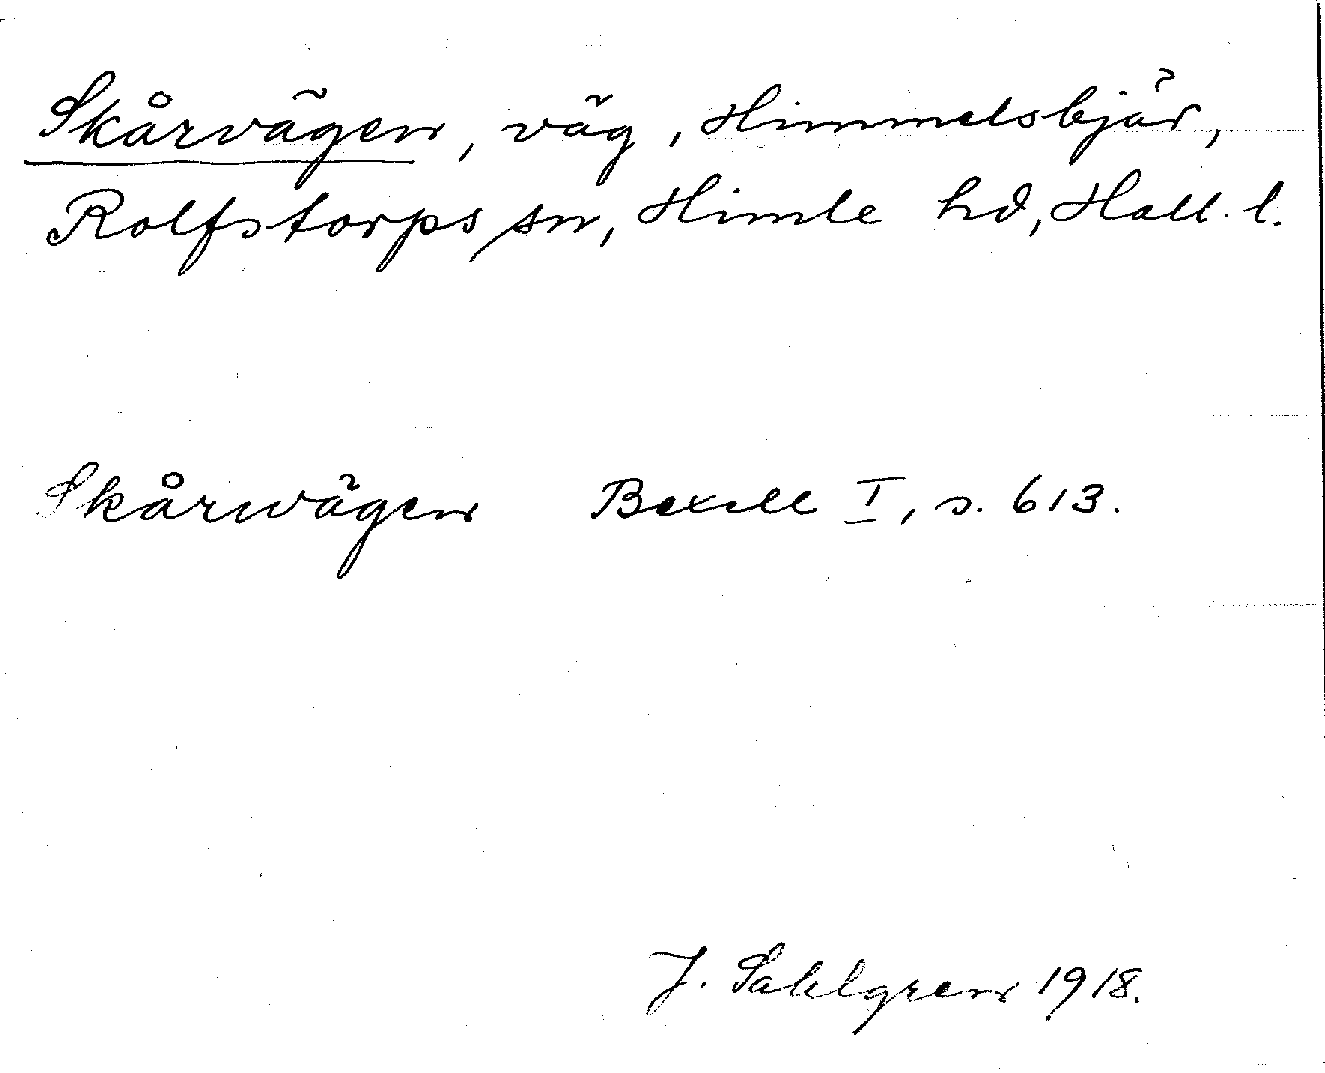 Skårvägen, väg, Himmelsbjär,
Rolfstorps sn, Himle hd, Hall. l.
Skårwägen Bexell I, s. 613.
J. Sahlgren 1918.